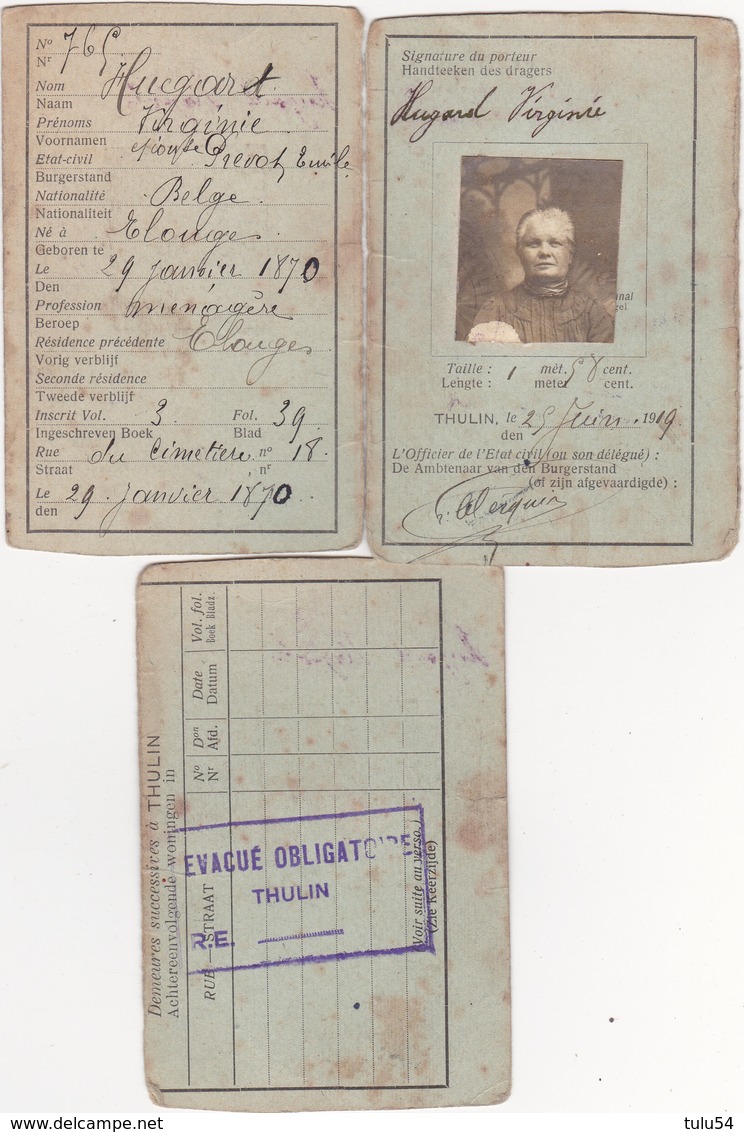 Nº 765
Nr
Nom Hugard
Naam
Prénoms Virginie
Voornamen
Etat-civil épouse Prevot, Emile
Burgerstand
Nationalité Belge.
Nationaliteit
Né à Elouges
Geboren te
Le 29 janvier 1870
Den
Profession ménagère
Beroep
Résidence précédente Elouges
Vorig verblijf
Seconde résidence
Tweede verblijf
Inscrit Vol. 3 Fol. 39
Ingeschreven Boek Blad
Rue du Cimetière nº 18.
Straat nr
Le 29 janvier 1870
den
Signature du porteur
Handteeken des dragers
Hugard Virginie
Taille : 1 mèt. 58 cent.
Lengte : meter cent.
THULIN, le 25 Juin 1919
den
L'Officier de l'Etat civil (ou son délégué) :
De Ambtenaar van den Burgerstand
(of zijn afgevaardigde) :
Demeures successives à THULIN
Achtereenvolgende woningen in
RUE — STRAAT
Nº
Nr
Don
Afd.
Date
Datum
Vol. fol.
Boek Bladz.
(Voir suite au verso.)
(Zie Keerzijde)
EVACUÉ OBLIGATOIRE
THULIN
R.E.
www.delcampe.net
tulu54